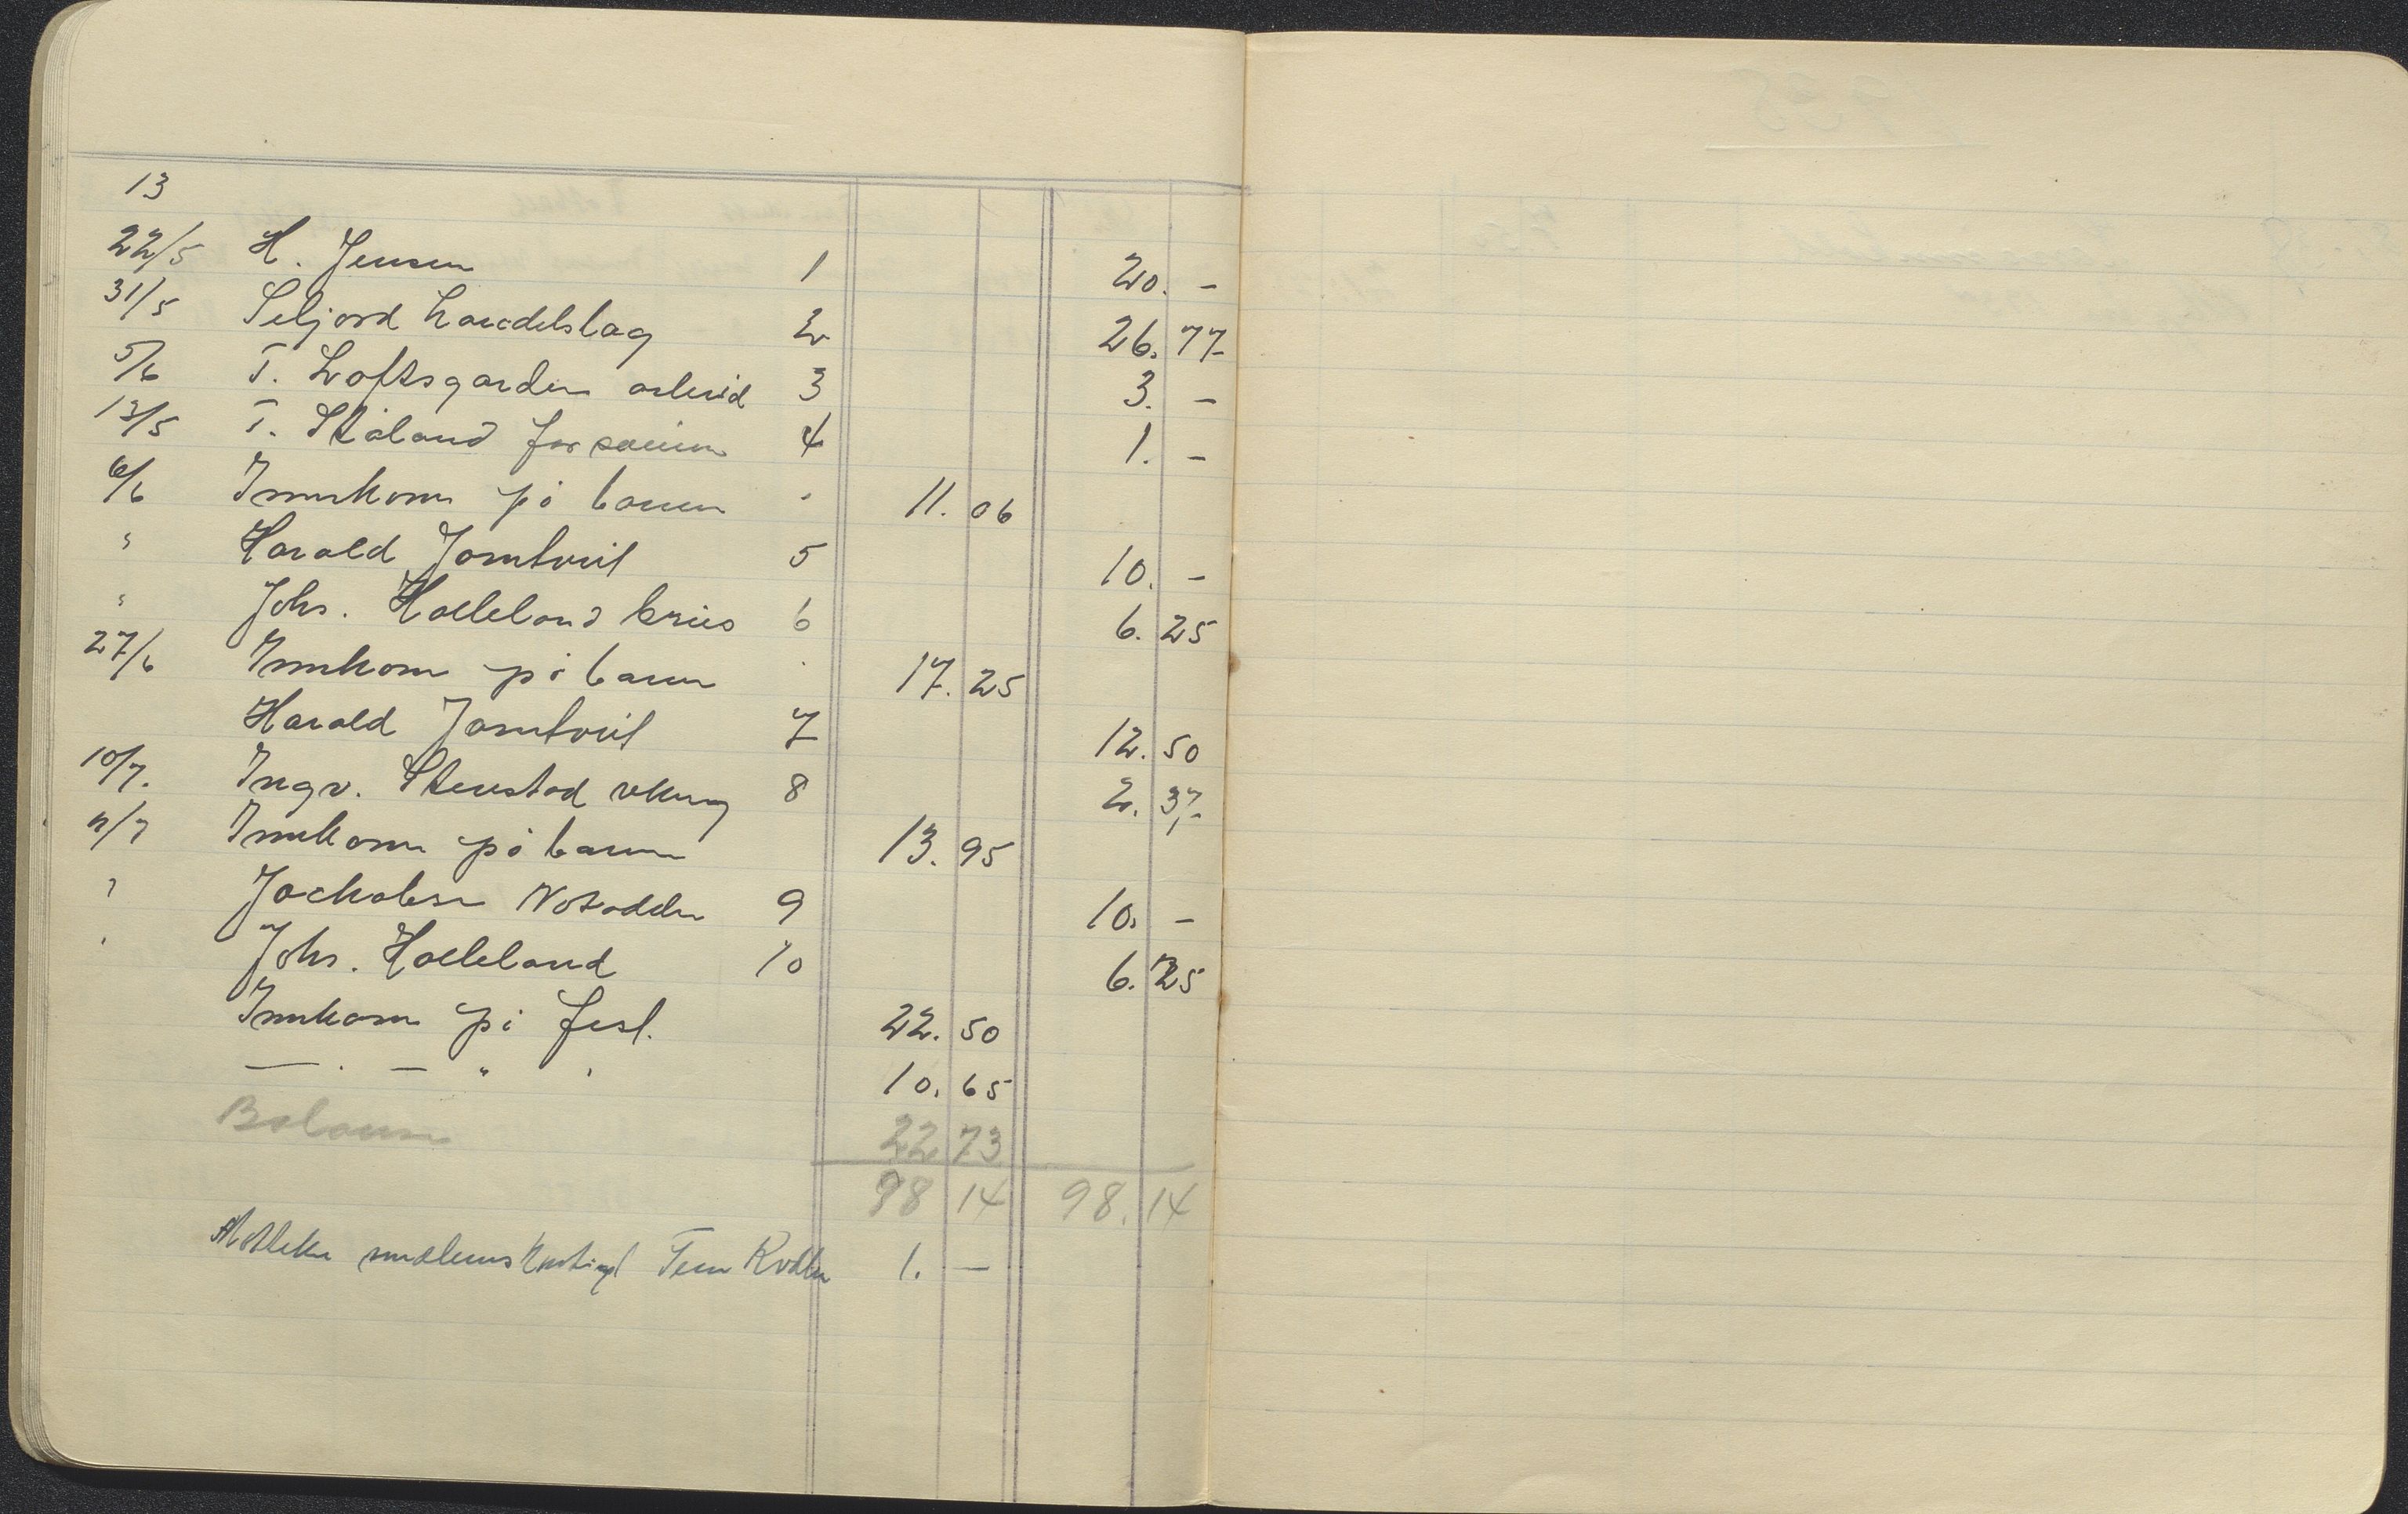 13
22/5 H. Jensen 1 20. -
31/5 Seljord handelslag 2 26. 77
5/6 T. Loftsgarden arbeid 3 3. -
13/5 T. Ståland for 4 1. -
6/6 Innkom på banen 11. 06
" Harald Jamtveit 5 10. -
" Johs. Hælleland brus 6 6. 25
27/6 Innkom på banen 17. 25
Harald Jamtveit 7 12. 50
10/7. Ingv. Stenstad 8 2. 37
11/7 Innkom på banen 13. 95
" Jackobsen Notodden 9 10. -
" Johs. Hælleland 10 6. 25
Innkom på fest. 22. 50
— " — " " 10. 65
Balanse 22 73
98 14 98. 14
1. —